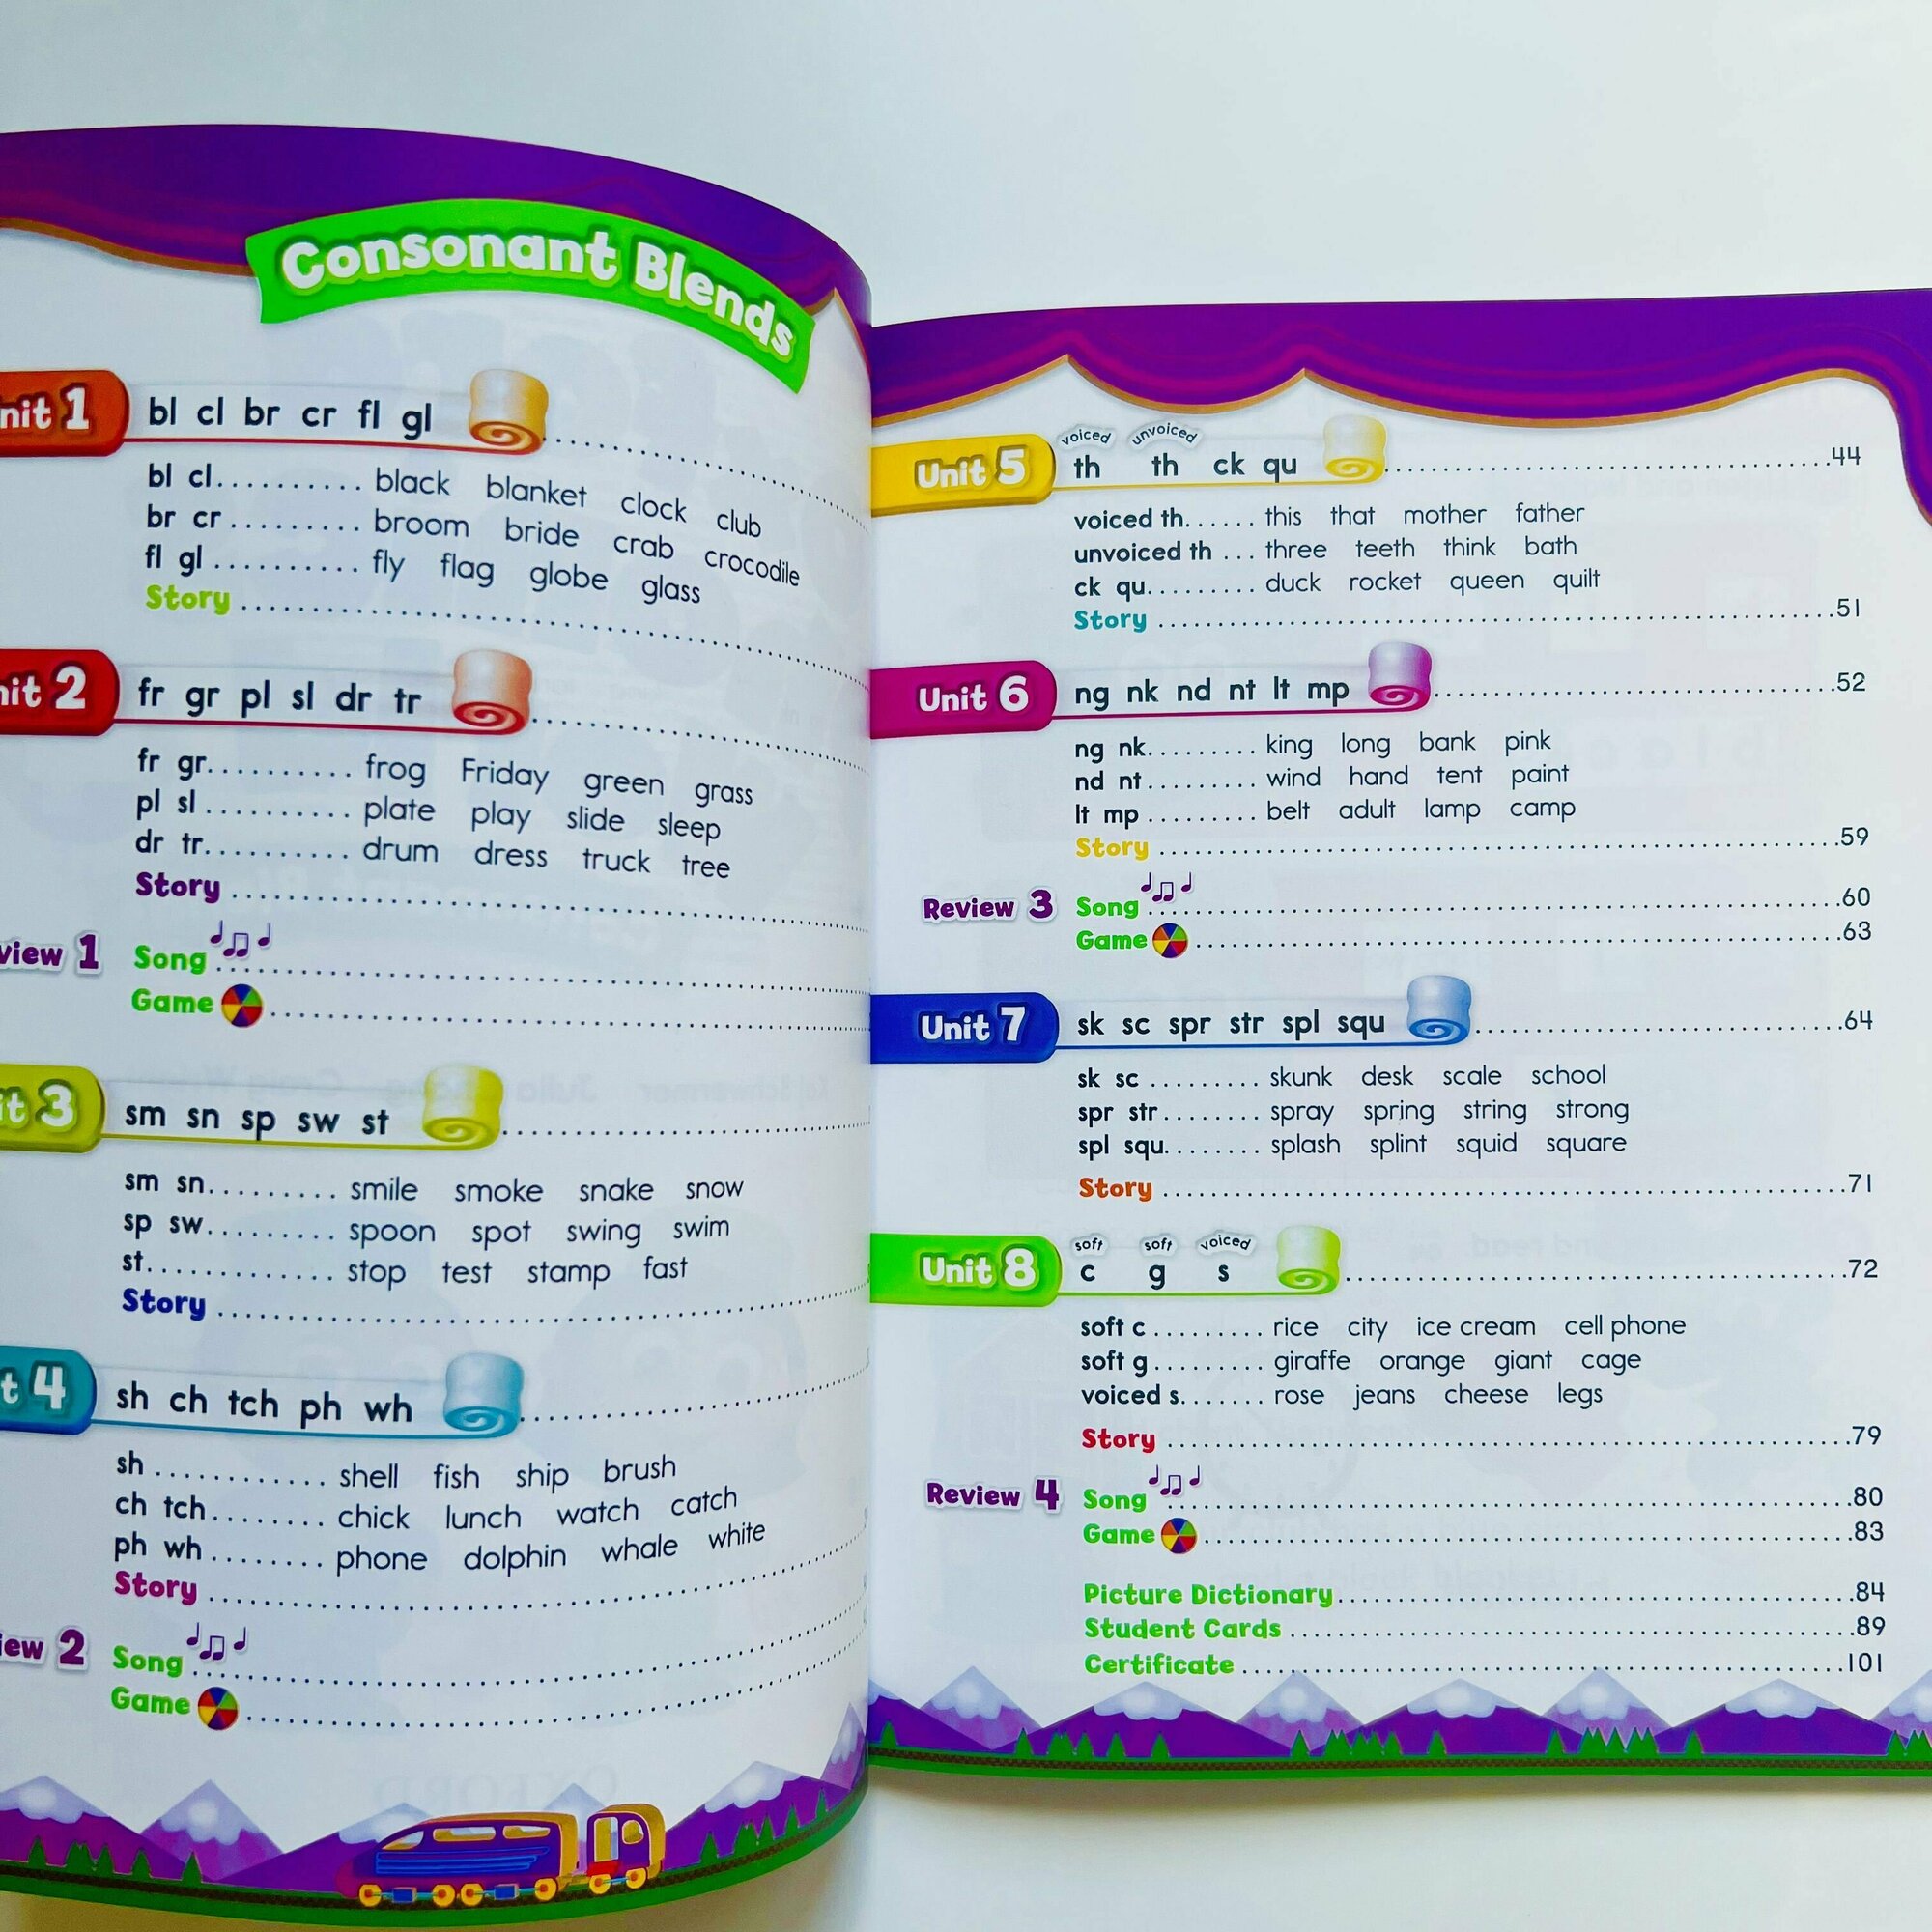 Consonant Blends
nit 1 bl cl br cr fl gl
bl cl.......... black blanket clock club
br cr ......... broom bride crab crocodile
fl gl .......... fly flag globe glass
Story
nit 2 fr gr pl sl dr tr
fr gr.......... frog Friday green grass
pl sl .......... plate play slide sleep
dr tr.......... drum dress truck tree
Story
view 1 Song
Game
it 3 sm sn sp sw st
sm sn......... smile smoke snake snow
sp sw......... spoon spot swing swim
st............. stop test stamp fast
Story
t 4 sh ch tch ph wh
sh ............ shell fish ship brush
ch tch........ chick lunch watch catch
ph wh ........ phone dolphin whale white
Story
iew 2 Song
Game
voiced unvoiced
Unit 5 th th ck qu 44
voiced th...... this that mother father
unvoiced th ... three teeth think bath
ck qu......... duck rocket queen quilt
Story 51
Unit 6 ng nk nd nt lt mp 52
ng nk......... king long bank pink
nd nt ......... wind hand tent paint
lt mp ......... belt adult lamp camp
Story 59
Review 3 Song 60
Game 63
Unit 7 sk sc spr str spl squ 64
sk sc ......... skunk desk scale school
spr str........ spray spring string strong
spl squ........ splash splint squid square
Story 71
soft soft voiced
Unit 8 c g s 72
soft c ......... rice city ice cream cell phone
soft g ......... giraffe orange giant cage
voiced s....... rose jeans cheese legs
Story 79
Review 4 Song 80
Game 83
Picture Dictionary 84
Student Cards 89
Certificate 101